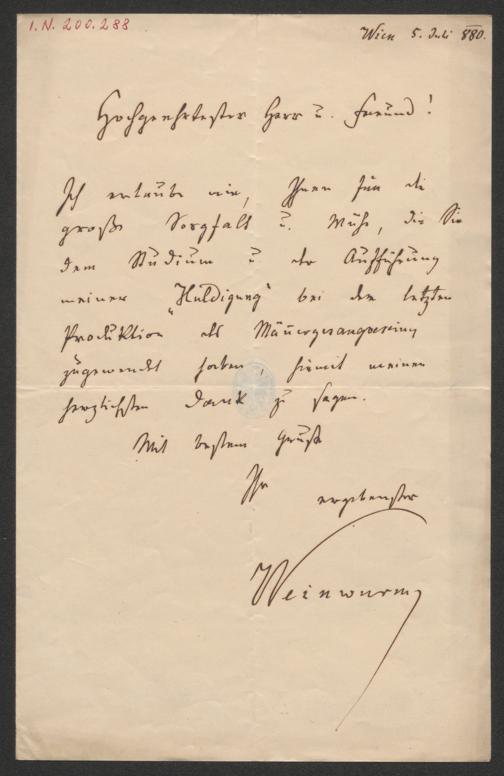 I.N. 200.288
Wien 5. Juli 880.
Hochgeehrtester Herr u. Freund!
Ich erlaube mir, Ihnen für die
große Sorgfalt u. Mühe, die Sie
dem Studium u der Aufführung
meiner "Huldigung" bei der letzten
Produktion des Männergesangvereins
zugewendet haben, hiemit meinen
herzlichsten Dank zu sagen.
Mit bestem Gruße
Ihr
ergebenster
Weinwurm